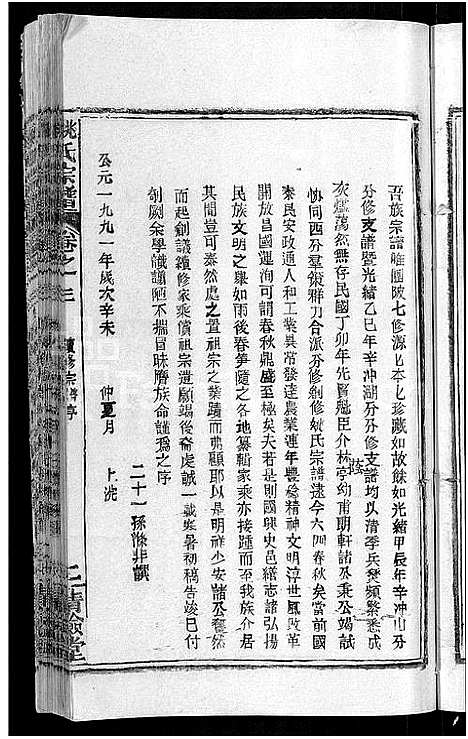 吾族宗譜唯團陂七修源㠯本㠯珍藏如故餘如光緒甲辰年辛冲山分
分修支譜暨光緒乙巳年辛冲湖分分修支譜均以清季兵燹頻繁悉成
灰燼蕩然無存民國丁卯年先賢魁臣介林亭幼甫朝軒諸公秉公竭誠
協同西分羣策聯刀合派分修創修姚氏宗譜逮今六四春秋矣當前國
泰民安政通人和工業具常發達農業連年豐稔精神文明淳世風改革
開放昌國運洵可謂春秋鼎盛至極矣夫若是則國興史邑繕志諳弘揚
民族文明之舉如雨後春笋隨之各地纂輯家乘亦接踵而至我族介居
其間豈可泰然處之置祖宗之業蹟而弗顧耶以是明祥少安諸公奮然
而起創議續修家乘償祖宗遺願竭後裔虔誠一載寒暑初稿告竣已付
剞劂余學識譾陋不揣冒昧膺族命謹爲之序
二十一孫滌非謹
公元一九九一年歲次辛未 仲夏月 上浣
姚氏宗譜 卷之一 三 續修宗譜序
三善儉堂